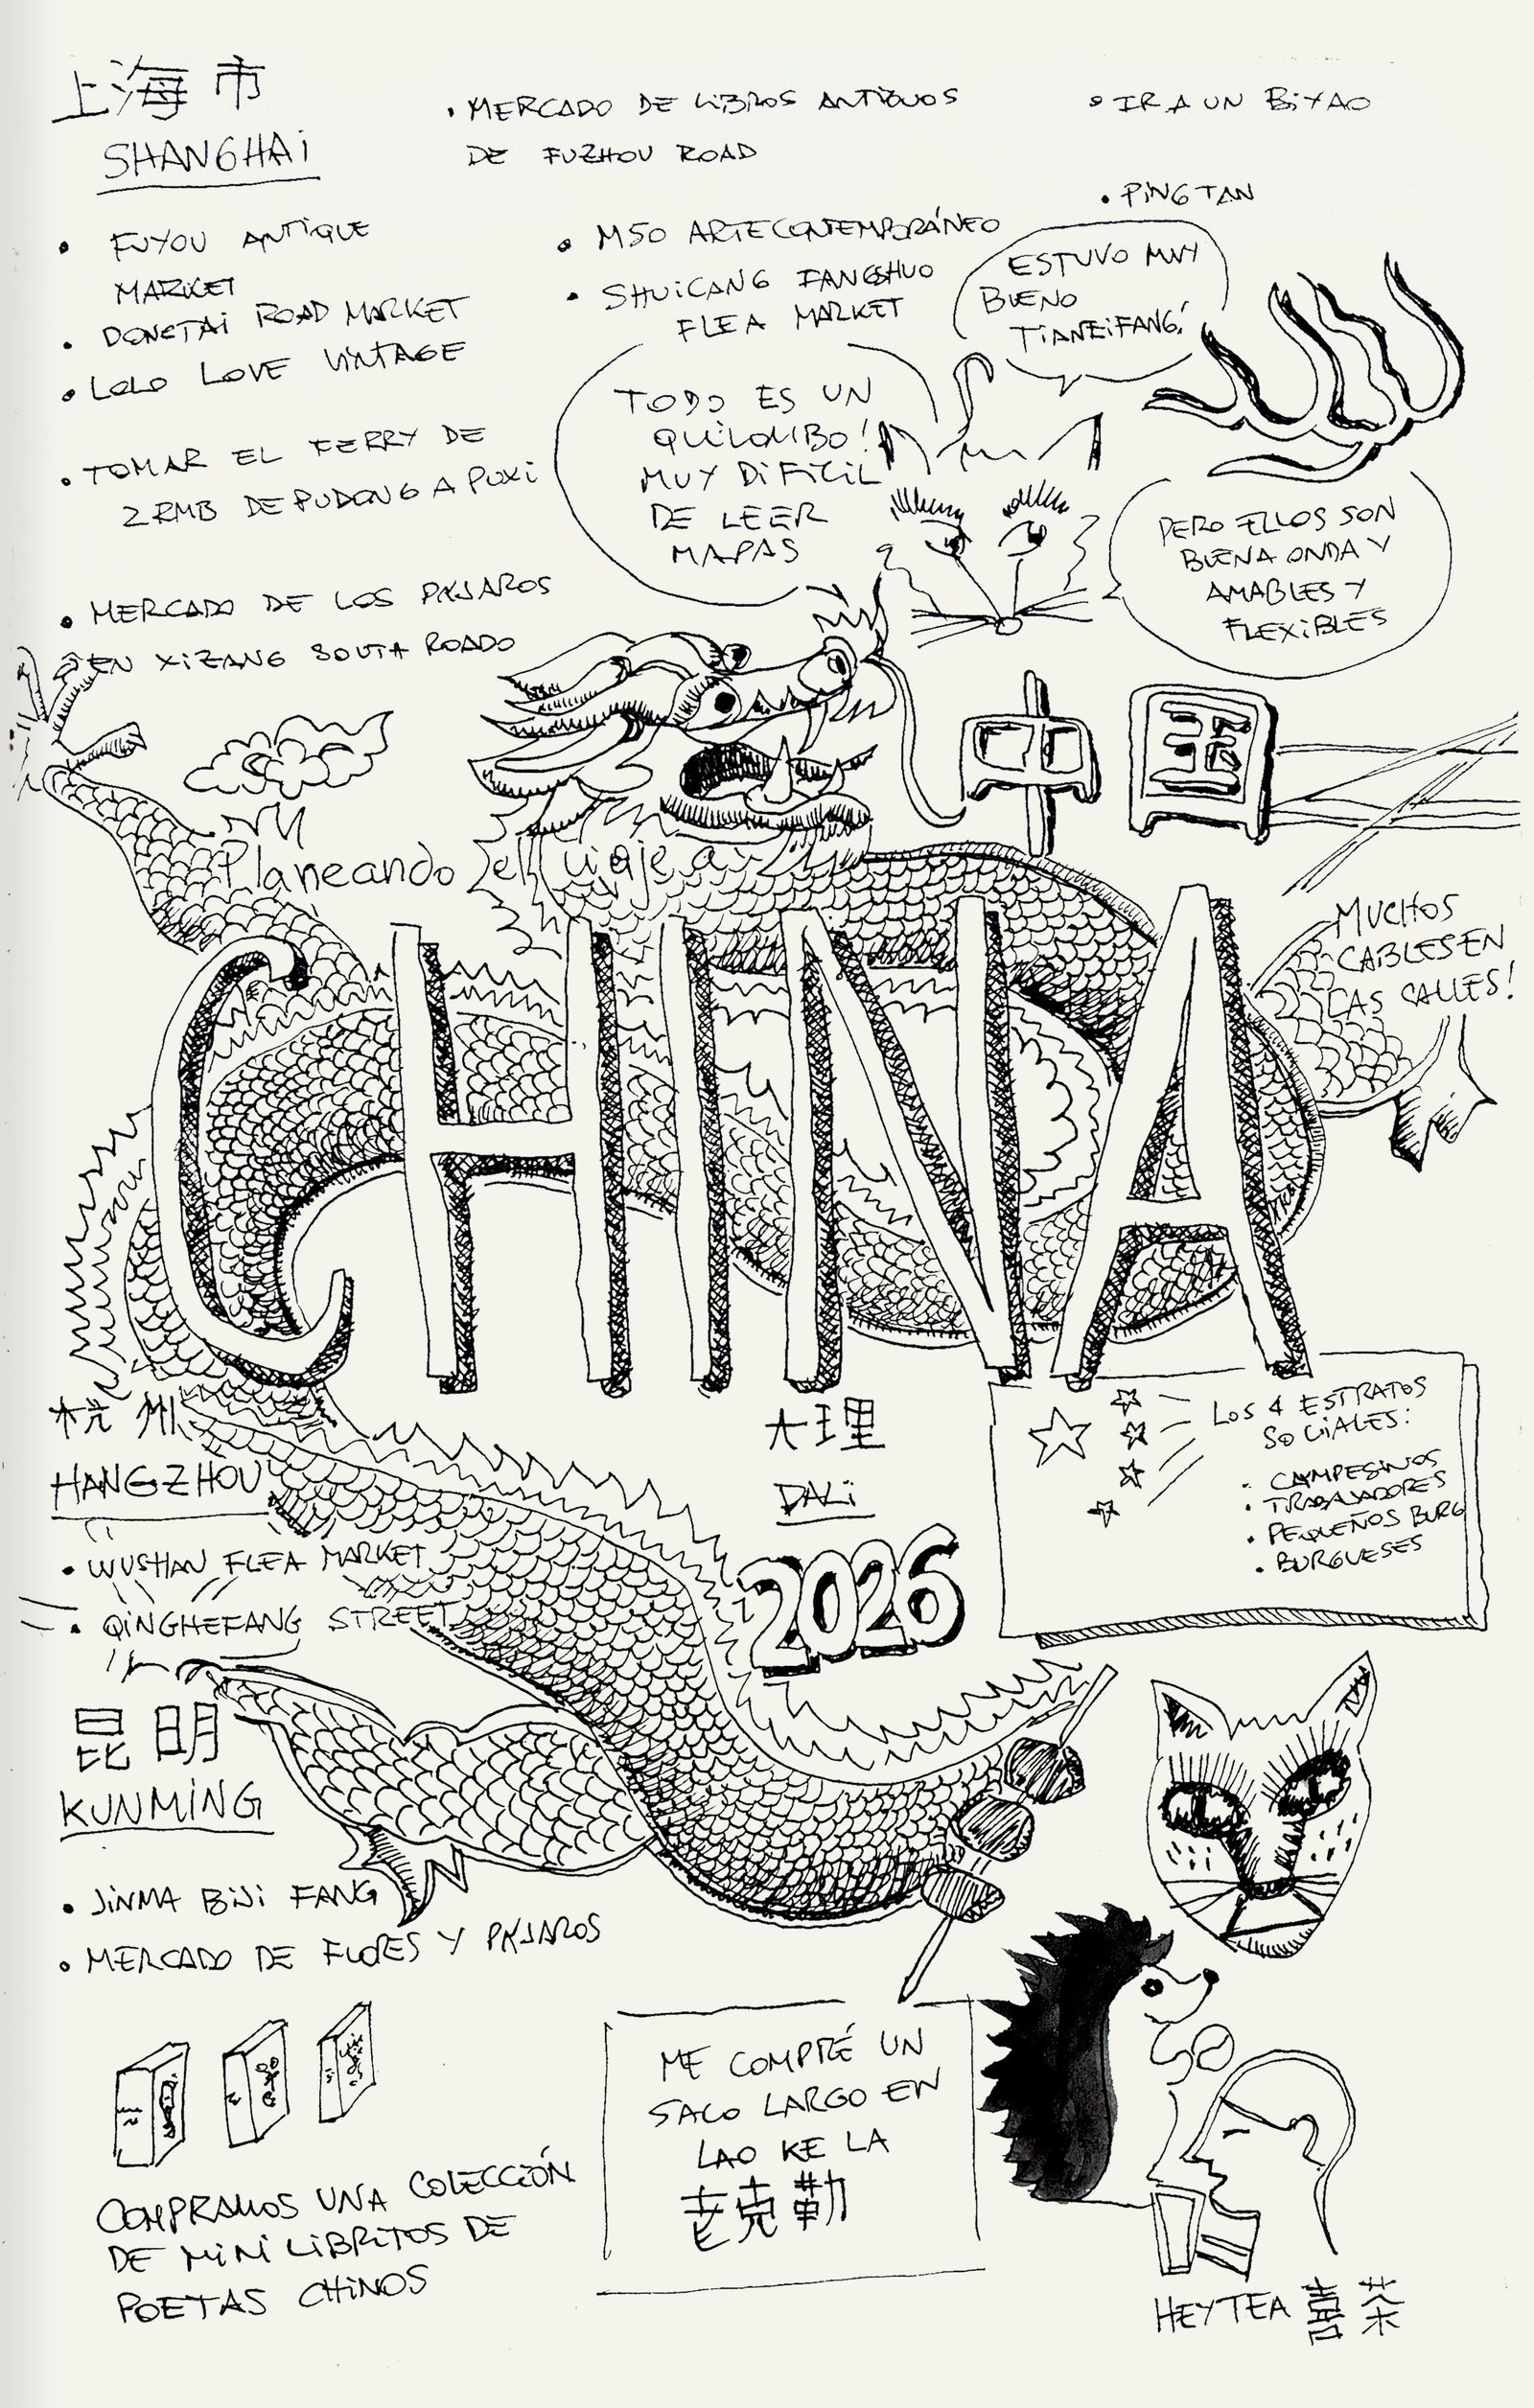 上海市
SHANGHAI
• FUYOU ANTIQUE
MARKET
• DONGTAI ROAD MARKET
• LOLO LOVE VINTAGE
• TOMAR EL FERRY DE
2 RMB DE PUDONG A PUXI
• MERCADO DE LOS PÁJAROS
EN XIZANG SOUTH ROADO
• MERCADO DE LIBROS ANTIGUOS
DE FUZHOU ROAD
• M50 ARTE CONTEMPORÁNEO
• SHUICANG FANGSHUO
FLEA MARKET
• IR A UN BIYAO
• PINGTAN
ESTUVO MUY
BUENO
TIANZIFANG!
TODO ES UN
QUILOMBO!
MUY DIFICIL
DE LEER
MAPAS
PERO ELLOS SON
BUENA ONDA Y
AMABLES Y
FLEXIBLES
中国
Planeando el viaje a
CHINA
MUCHOS
CABLES EN
LAS CALLES!
杭州
HANGZHOU
• WUSHAN FLEA MARKET
• QINGHEFANG STREET
大理
DALI
2026
LOS 4 ESTRATOS
SOCIALES:
• CAMPESINOS
• TRABAJADORES
• PEQUEÑOS BURG
• BURGUESES
昆明
KUNMING
• JINMA BIJI FANG
• MERCADO DE FLORES Y PÁJAROS
COMPRAMOS UNA COLECCIÓN
DE MINI LIBRITOS DE
POETAS CHINOS
ME COMPRÉ UN
SACO LARGO EN
LAO KE LA
老克勒
HEYTEA 喜茶